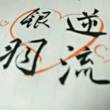 逆流
银羽